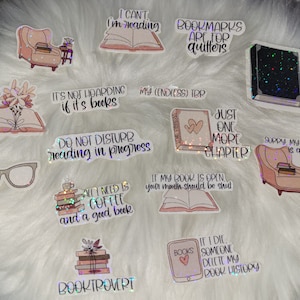 I CAN'T
I'm reading
BOOKMARKS
ARE FOR
quitters
IT'S NOT HOARDING
if it's books
MY (ENDLESS) TBR
JUST
ONE
MORE
CHAPTER
DO NOT DISTURB
reading in progress
SORRY MY
IS
ALL I NEED IS
COFFEE
and a good book
IF MY BOOK IS OPEN,
your mouth should be shut
BOOKTROVERT
BOOKS
IF I DIE
SOMEONE
DELETE MY
BOOK HISTORY